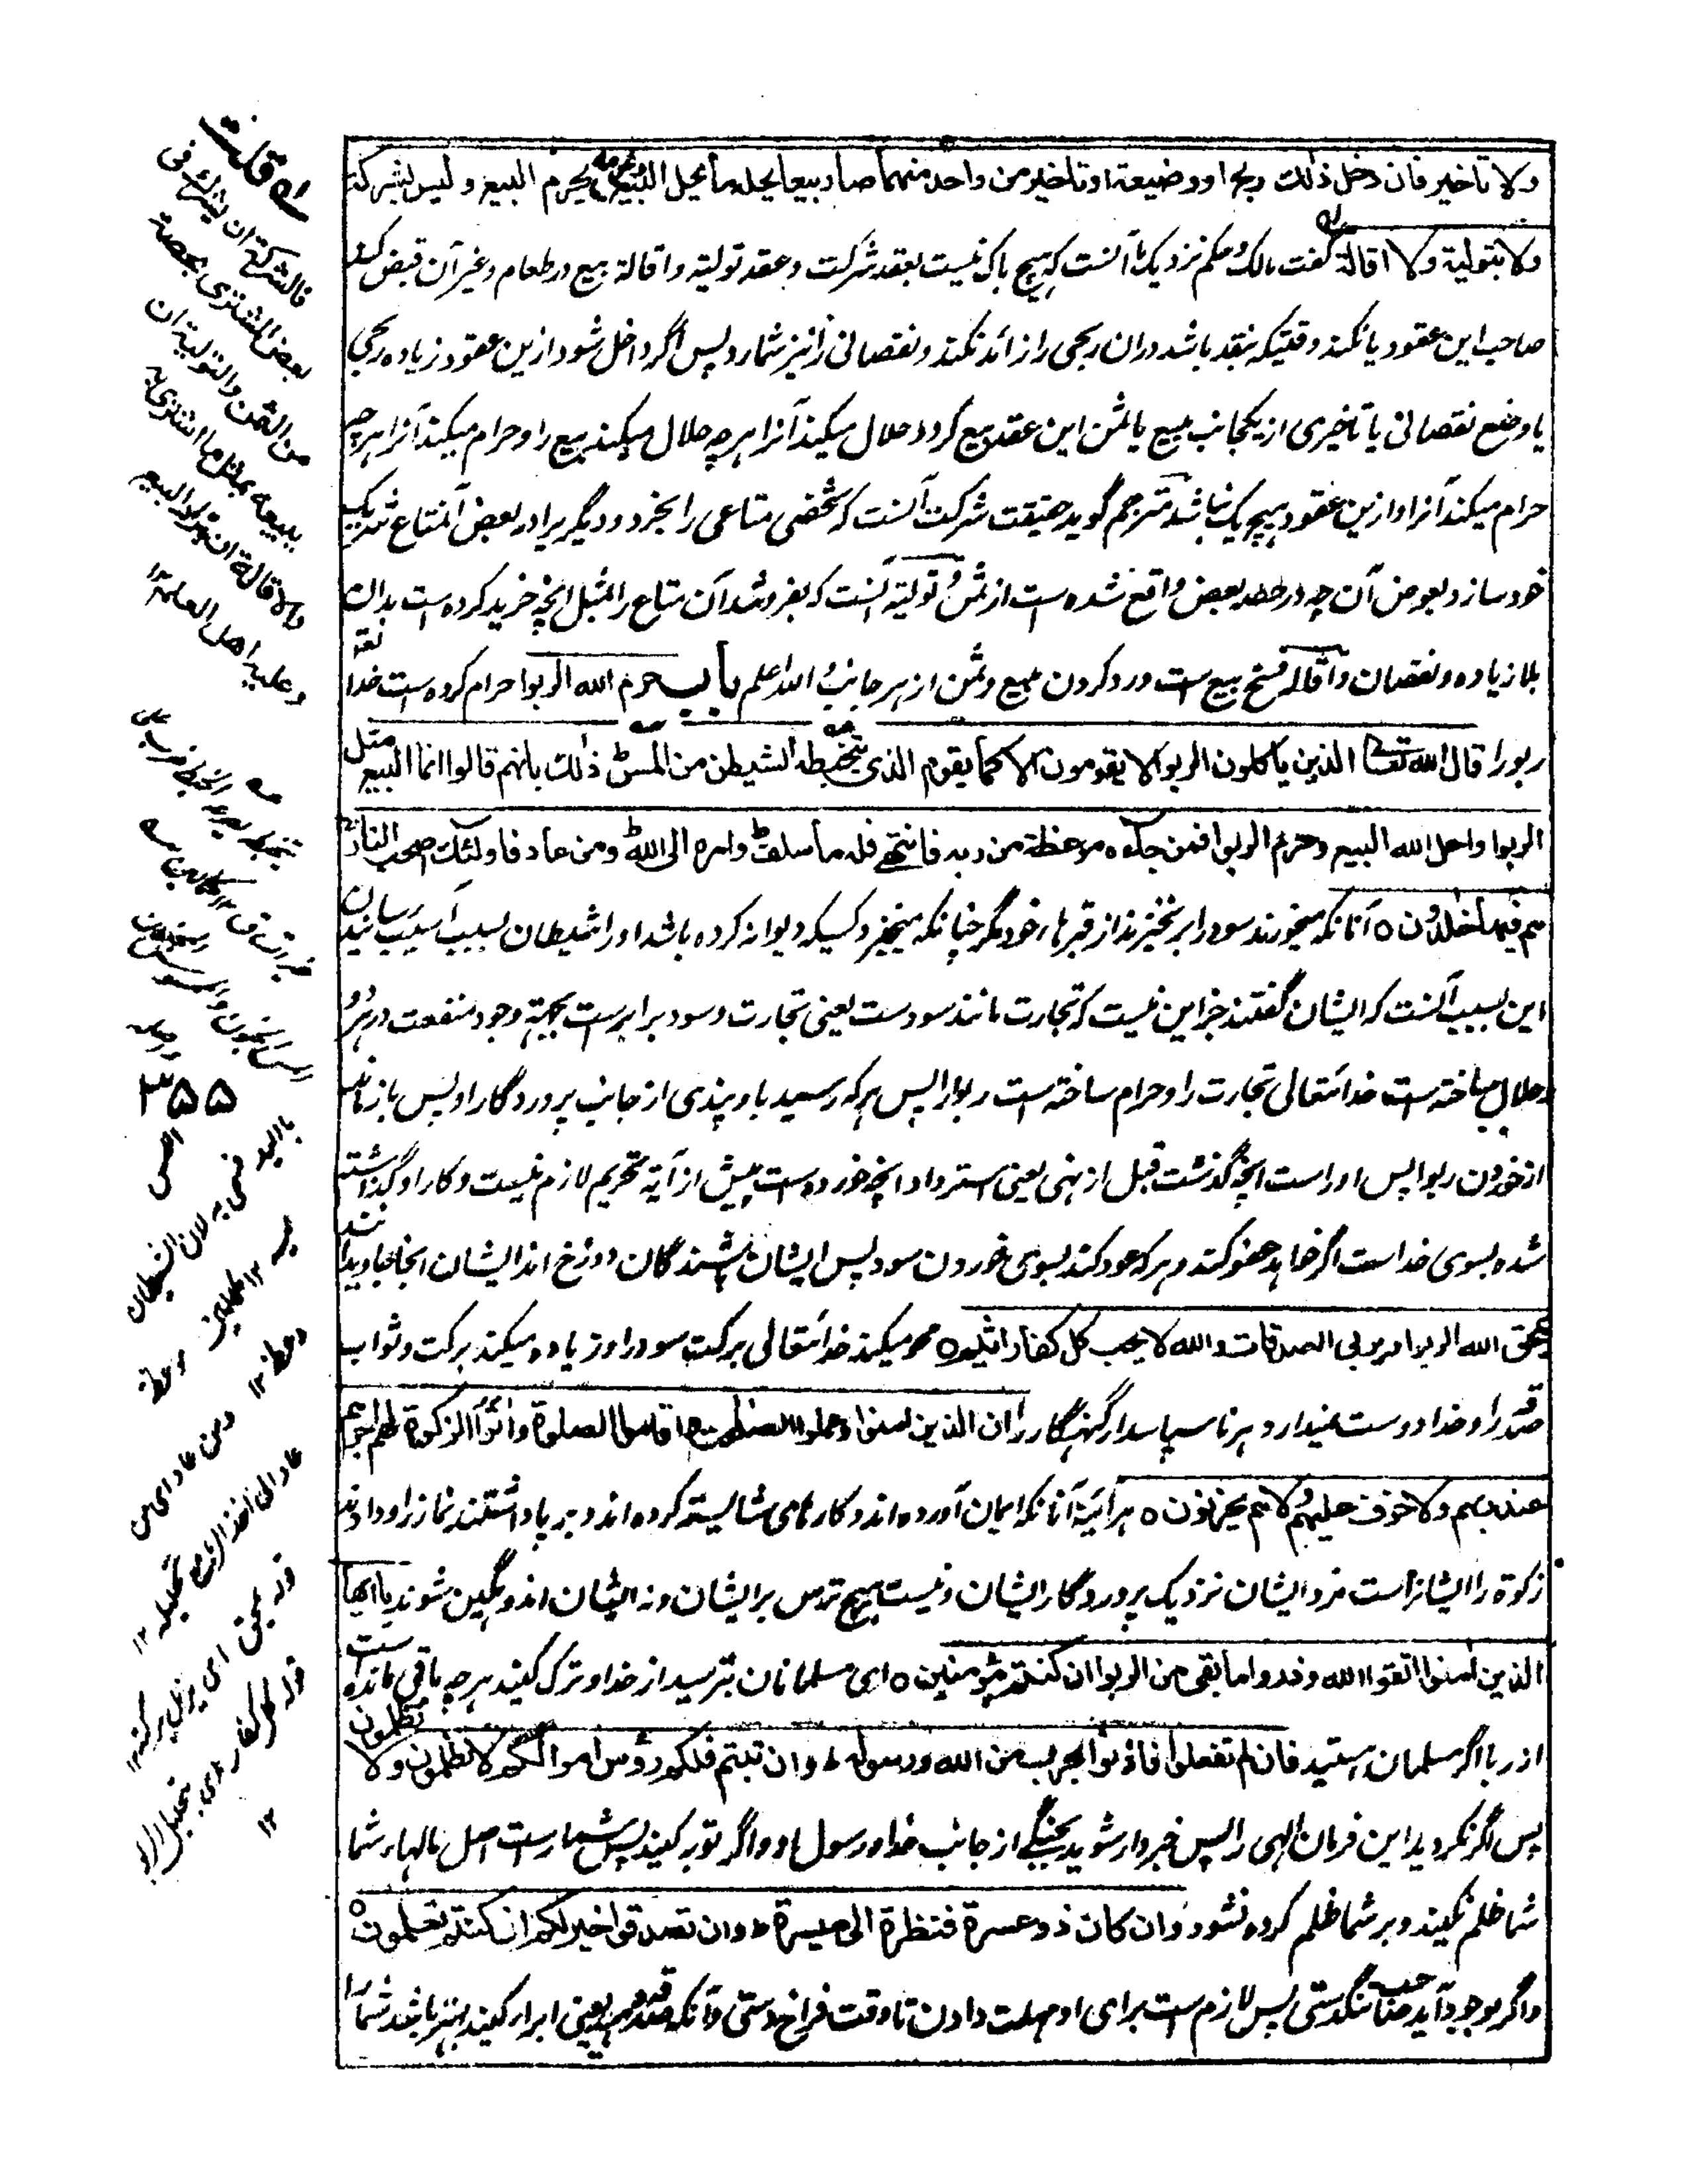 ولا تاخیر فان دخل ذلك ربح او وضیعة او تاخیر من واحد منهما صار بیعا یحله ما یحل البیع ویحرمه ما یحرم البیع و لیس بشرکة
ولا بتولیة ولا اقالة گفت مالک حکم نزدیک ما آنست که هیچ باک نیست بعقد شرکت و عقد تولیة و اقالة بیع در طعام و غیر آن قبض کند
صاحب این عقود یا نکند وقتیکه بنقد باشد دران ربحی را زائد نکند و نقصانی را نیز شمارد پس اگر داخل شود ازین عقود زیاده ربحی
یا وضع نقصانی یا تاخیری از یکجانب مبیع یا ثمن این عقد بیع گردد حلال میکند آنرا هرچه حلال میکند بیع را و حرام میکند آنرا هرچه
حرام میکند آنرا و ازین عقود هیچ یک نباشد مترجم گوید حقیقت شرکت آنست که شخصی متاعی را بخرد و دیگریرا در بعض آن متاع شریک
خود سازد بعوض آن چه در حصه بعض واقع شده است از ثمن و تولیة آنست که بفروشد آن متاع را بمثل انچه خرید کرده ست بدان
بلا زیاده و نقصان و اقاله فسخ بیع است و رد کردن مبیع و ثمن از هر جانب والله اعلم باب حرم الله الربوا حرام کرده ست خدا
ربورا قال الله تعالی الذین یاکلون الربوا لا یقومون الا کما یقوم الذی یتخبطه الشیطن من المس ذلك بانهم قالوا انما البیع مثل
الربوا واحل الله البیع وحرم الربوا فمن جاءه موعظة من ربه فانتهی فله ما سلف وامره الی الله ومن عاد فاولئك اصحب النار
هم فیها خلدون ٥ آنانکه میخورند سود را برنخیزند از قبرهای خود مگر چنانکه میخیزد کسیکه دیوانه کرده باشد او را شیطان بسبب آسیب رسانیدن
این بسبب آنست که ایشان گفتند جز این نیست که تجارت مانند سودست یعنی تجارت و سود برابرست بجهة وجود منفعت در هر دو
و حلال ساخته است خدا تعالی تجارت را و حرام ساخته ست ربوا را پس هرکه رسید باو پندی از جانب پروردگار او پس باز ماند
از خوردن ربوا پس او راست انچه گذشت قبل از نهی یعنی استرداد انچه خورده است پیش از آیة تحریم لازم نیست و کار او گذاشته
شده بسوی خداست اگر خواهد عفو کند و هرکه عود کند بسوی خوردن سود پس ایشان باشندگان دوزخ اند ایشان انجا جاویدانند
یمحق الله الربوا ویربی الصدقات والله لا یحب کل کفار اثیم ٥ محو میکند خدا تعالی برکت سود را و زیاده میکند برکت و ثواب
صدقه را و خدا دوست نمیدارد هر ناسپاسدار گنهگار را ان الذین امنوا وعملوا الصلحت واقاموا الصلوة واتوا الزکوة لهم اجرهم
عند ربهم ولا خوف علیهم ولا هم یحزنون ٥ هر آئینه آنانکه ایمان آورده اند و کارهای شایسته کرده اند و بر پا داشتند نماز را و دادند
زکوة را ایشانراست مزد ایشان نزدیک پروردگار ایشان و نیست هیچ ترس بر ایشان و نه ایشان اندوهگین شوند یا ایها
الذین امنوا اتقوا الله وذروا ما بقی من الربوا ان کنتم مؤمنین ٥ ای مسلمانان بترسید از خدا و ترک کنید هرچه باقی مانده است
از ربا اگر مسلمان هستید فان لم تفعلوا فاذنوا بحرب من الله ورسوله ط وان تبتم فلکم رؤس اموالکم لا تظلمون ولا تظلمون
پس اگر نکردید این فرمان الهی را پس خبردار شوید بجنگے از جانب خدا و رسول او و اگر توبه کنید پس شمار است اصل مالهاء شما
شما ظلم نکنید و بر شما ظلم کرده نشود وان کان ذو عسرة فنظرة الی میسرة ط وان تصدقوا خیر لکم ان کنتم تعلمون ٥
و اگر بوجود آید صاحب تنگدستی پس لازم ست برای او مهلت دادن تا وقت فراخ دستی و آنکه صدقه دهید یعنی ابرار کنید بهتر باشد شما را
قلت
فالشرکة ان یشرك فی
بعض المشتری بحصة
من الثمن والتولیة ان
یبیعه بمثل ما اشتری به
والاقالة ان یرد البیع
وعلیه اهل العلم ١٢
٣٥٥